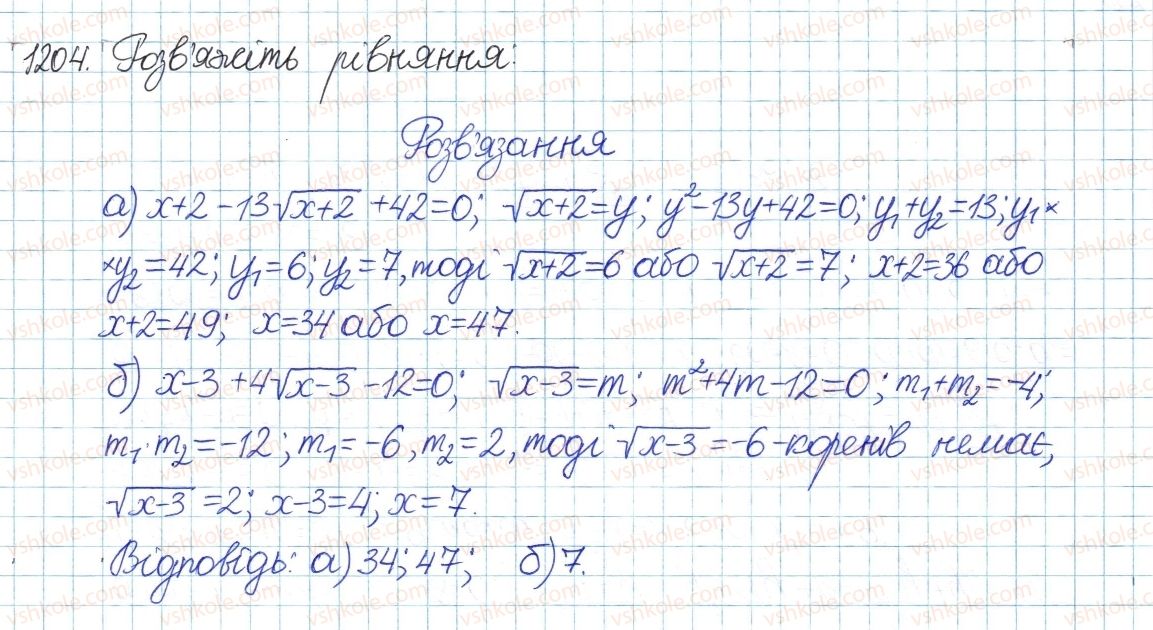 1204. Розв'яжіть рівняння:
Розв'язання
а) x+2-13√(x+2) +42=0; √(x+2)=y; y²-13y+42=0; y₁+y₂=13; y₁×
×y₂=42; y₁=6; y₂=7, тоді √(x+2)=6 або √(x+2)=7; x+2=36 або
x+2=49; x=34 або x=47.
б) x-3+4√(x-3)-12=0; √(x-3)=m; m²+4m-12=0; m₁+m₂=-4;
m₁·m₂=-12; m₁=-6, m₂=2, тоді √(x-3)=-6-коренів немає,
√(x-3)=2; x-3=4; x=7.
Відповідь: а) 34; 47; б) 7.